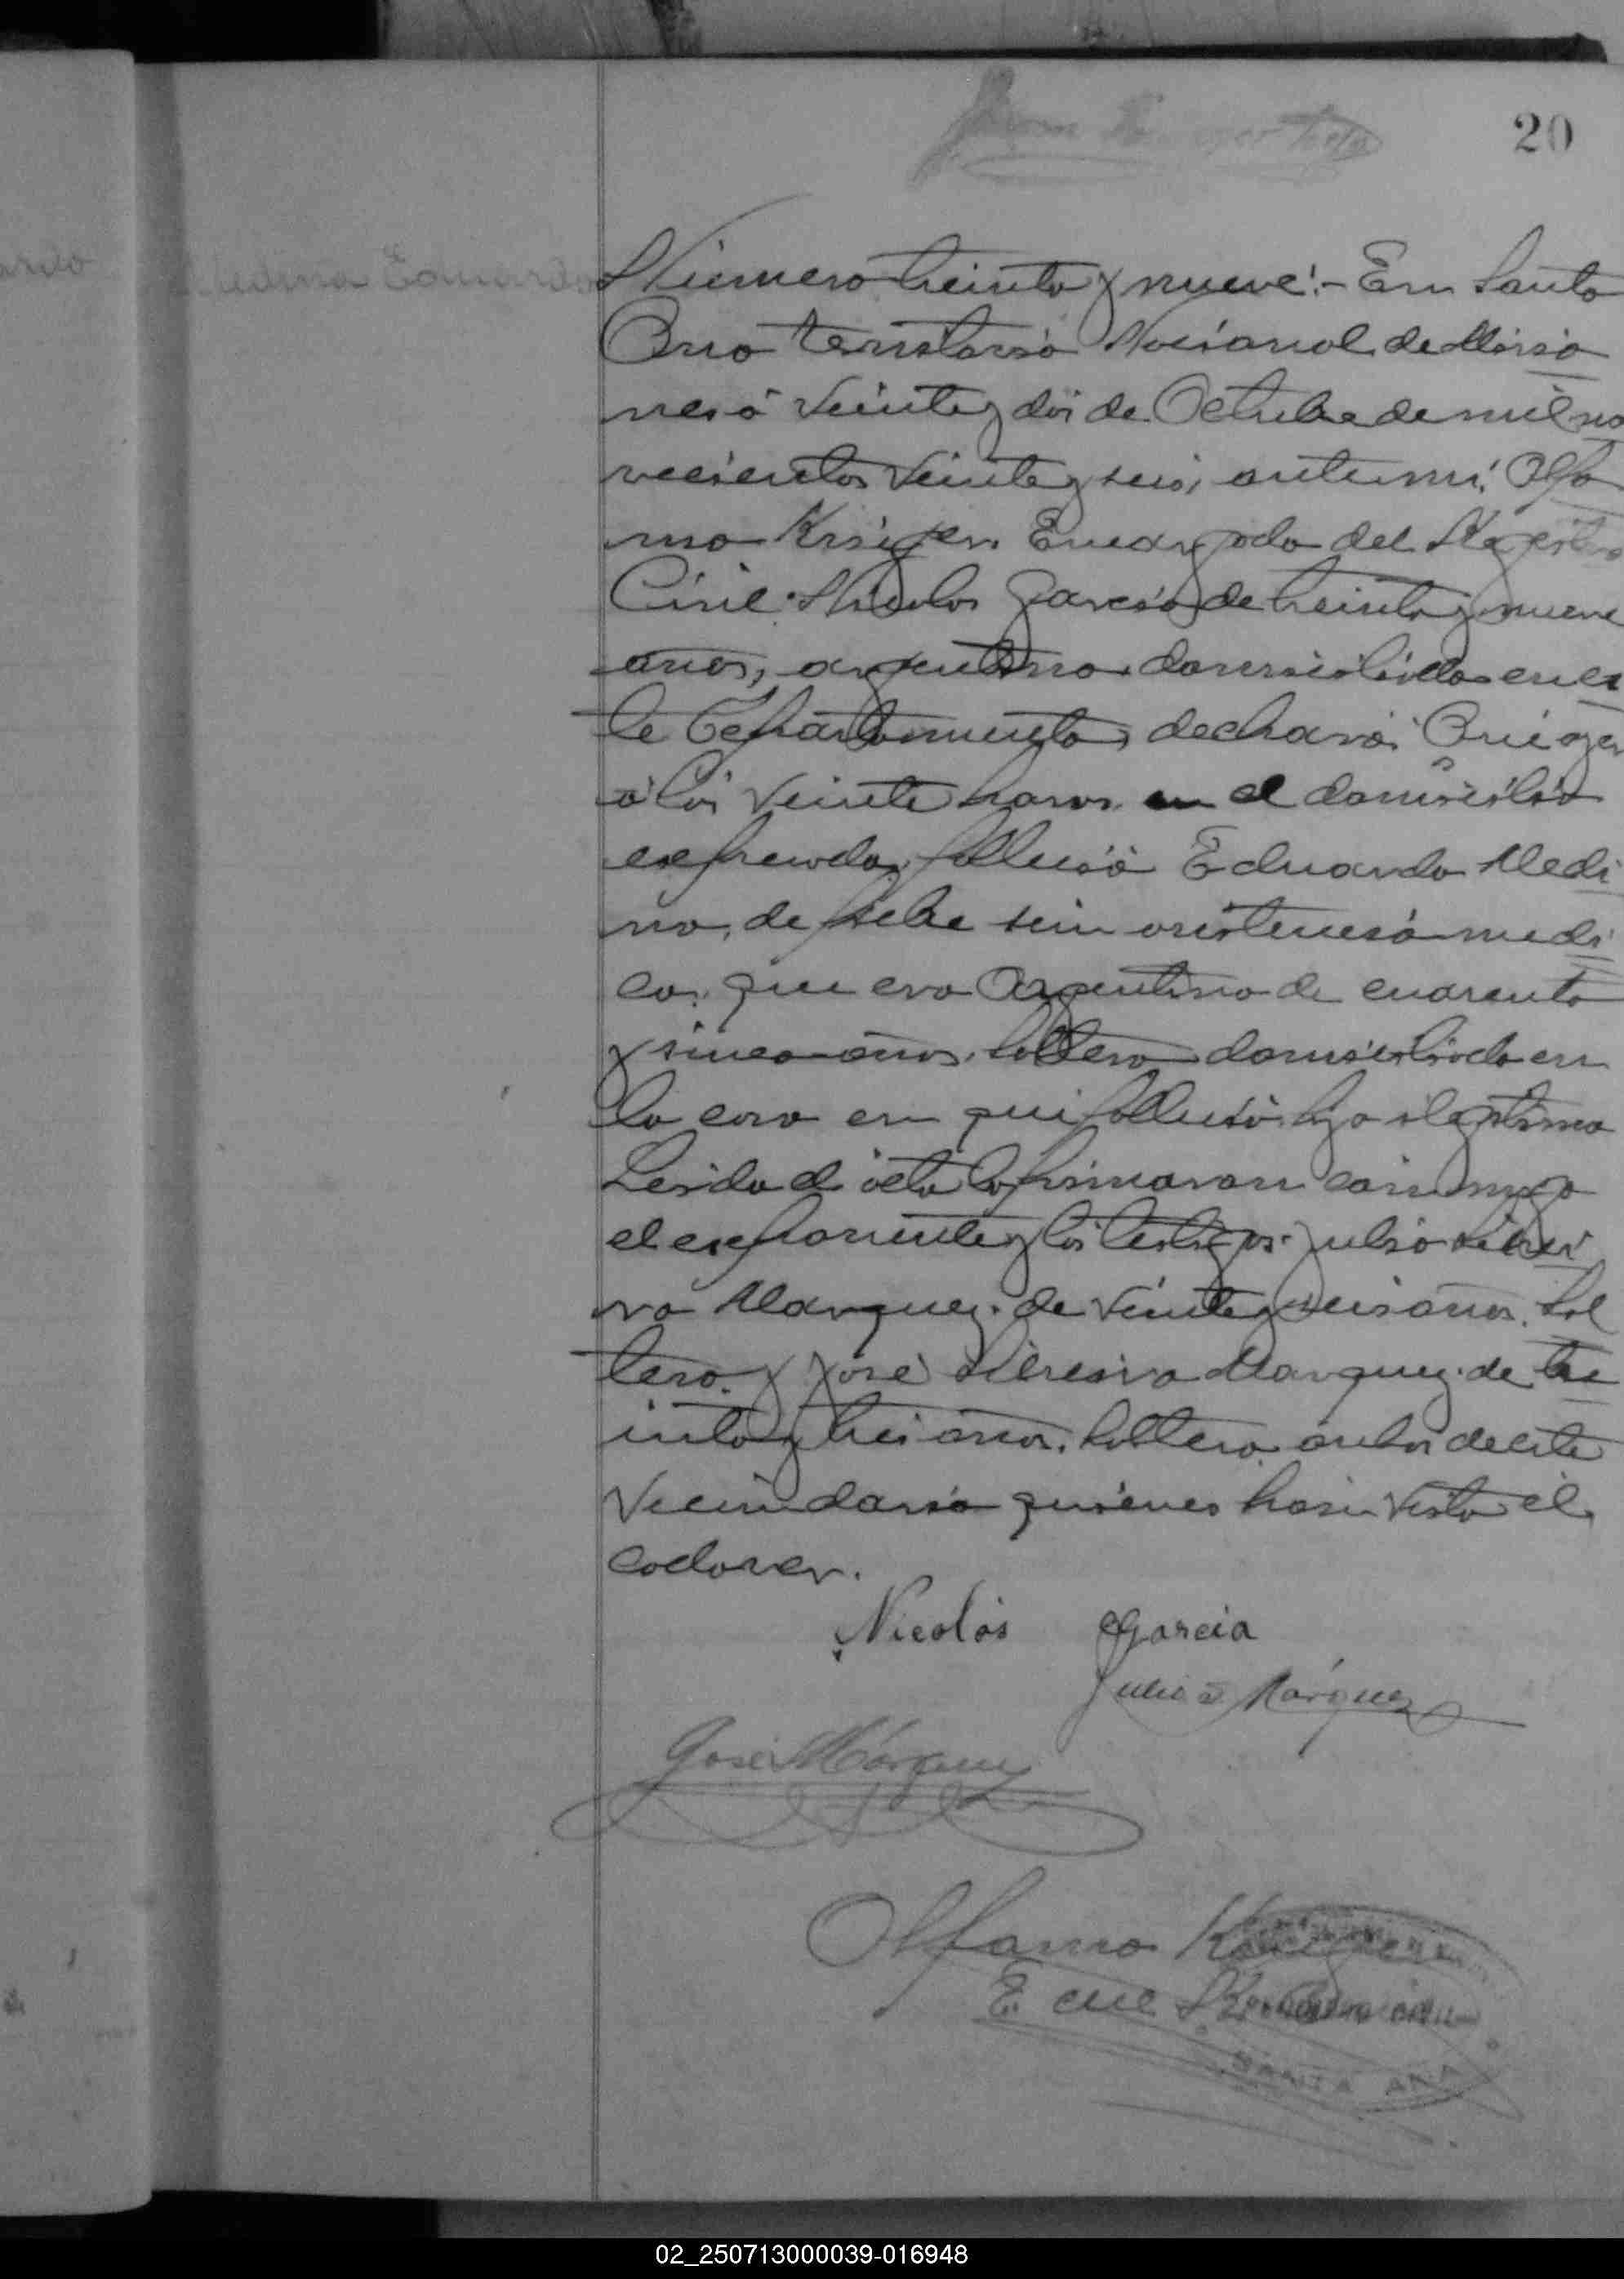 20
Medina Eduardo
Número treinta y nueve:- En Santa
Ana territorio Nacional de Misio
nes á veinte y dos de Octubre de mil no
vecientos veinte y seis, ante mi: Alfo
nso Encargado del Registro
Civil: Nicolas Garcia de treinta y nueve
años, argentino domisiliado en es
te Departamento, declaró: Que ayer
á las veinte horas en el domisilio
espresado fallesió Eduardo Medi
na, de fiebre sin asistensia medi
ca, que era Argentino de cuarenta
y sinco años, soltero domisiliado en
la casa en que fallesió hijo ilegitimo
Leida el acta la firmaron conmigo
el exponente y los testigos: Julio
Marquez de veinte y seis años, sol
tero, y José Marquez de tre
inta y tres años, soltero, anbos de este
vecindario quienes han visto el
cadaver.
Nicolás Garcia
Julio S Márquez
José Márquez
Alfonso
E. del R. Civil
SANTA ANA
02_250713000039-016948